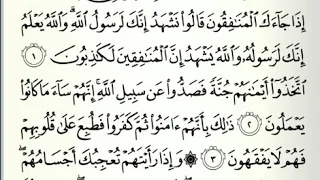 إِذَا جَآءَكَ ٱلْمُنَٰفِقُونَ قَالُوا۟ نَشْهَدُ إِنَّكَ لَرَسُولُ ٱللَّهِ ۗ وَٱللَّهُ يَعْلَمُ
إِنَّكَ لَرَسُولُهُۥ وَٱللَّهُ يَشْهَدُ إِنَّ ٱلْمُنَٰفِقِينَ لَكَٰذِبُونَ ١
ٱتَّخَذُوٓا۟ أَيْمَٰنَهُمْ جُنَّةً فَصَدُّوا۟ عَن سَبِيلِ ٱللَّهِ ۚ إِنَّهُمْ سَآءَ مَا كَانُوا۟
يَعْمَلُونَ ٢ ذَٰلِكَ بِأَنَّهُمْ ءَامَنُوا۟ ثُمَّ كَفَرُوا۟ فَطُبِعَ عَلَىٰ قُلُوبِهِمْ
فَهُمْ لَا يَفْقَهُونَ ٣ ۞ وَإِذَا رَأَيْتَهُمْ تُعْجِبُكَ أَجْسَامُهُمْ ۖ